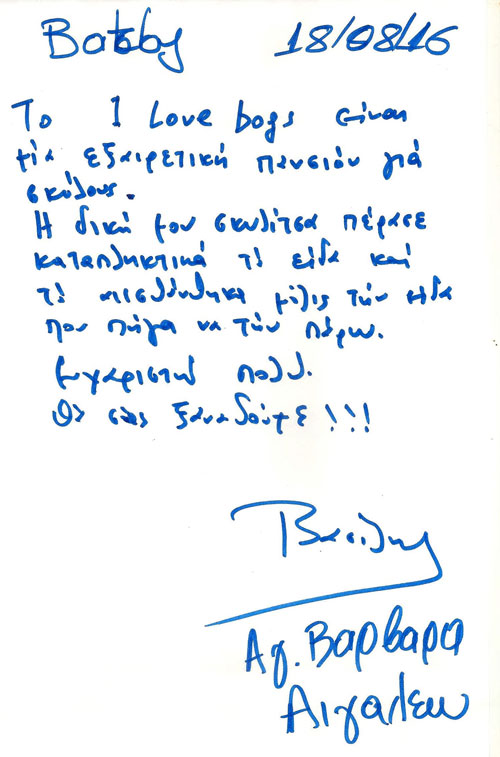 18/08/16
Το I Love Dogs είναι
μία εξαιρετική πανσιόν γιά
σκύλους.
Η δική μου σκυλίτσα πέρασε
καταπληκτικά τό είδα καί
τό αισθάνθηκα μόλις τήν είδα
που πήγα να τήν πάρω.
Ευχαριστώ πολύ.
Θά σάς ξαναδούμε !!!
Βασίλης
Αγ. Βαρβαρα
Αιγαλεω